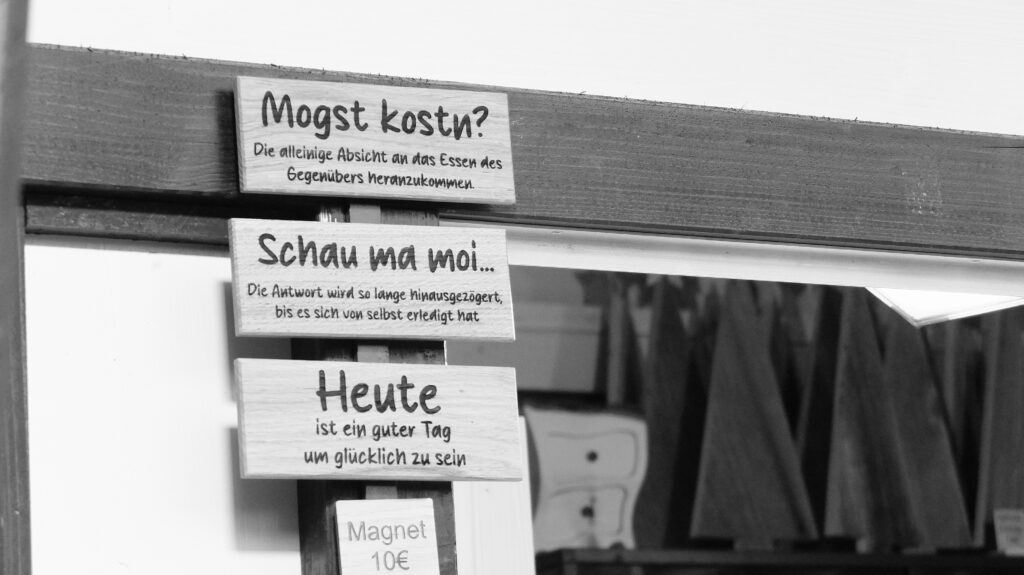 Mogst kostn?
Die alleinige Absicht an das Essen des
Gegenübers heranzukommen.
Schau ma moi...
Die Antwort wird so lange hinausgezögert,
bis es sich von selbst erledigt hat
Heute
ist ein guter Tag
um glücklich zu sein
Magnet
10€